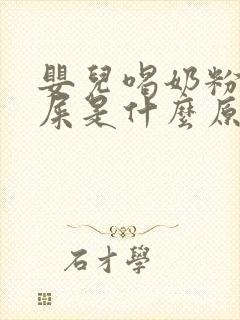 嬰兒喝奶粉
屎是什麼原
石才學